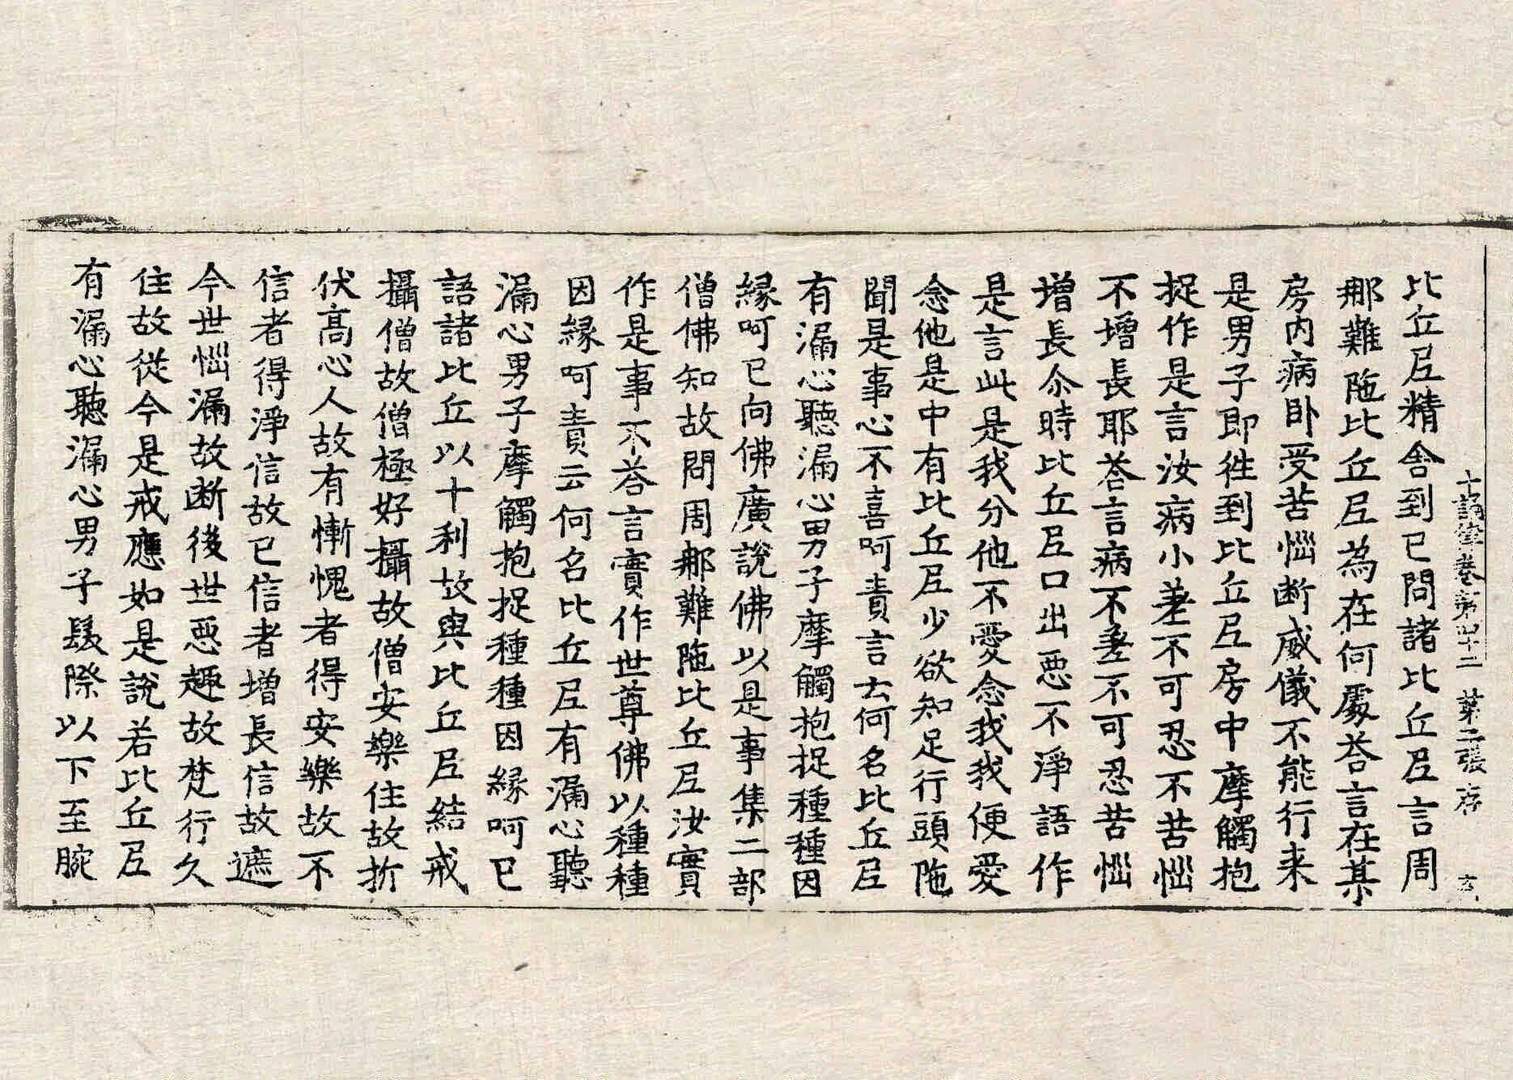 十誦律卷第四十二 第二張 存
比丘尼精舍到已問諸比丘尼言周
那難陁比丘尼為在何處荅言在某
房內病卧受苦惱断威儀不能行来
是男子即徃到比丘尼房中摩觸抱
捉作是言汝病小差不可忍不苦惱
不增長耶荅言病不差不可忍苦惱
增長尒時比丘尼口出惡不淨語作
是言此是我分他不愛念我我便愛
念他是中有比丘尼少欲知足行頭陁
聞是事心不喜呵責言云何名比丘尼
有漏心聽漏心男子摩觸抱捉種種因
緣呵已向佛廣說佛以是事集二部
僧佛知故問周那難陁比丘尼汝實
作是事不荅言實作世尊佛以種種
因緣呵責云何名比丘尼有漏心聽
漏心男子摩觸抱捉種種因緣呵已
語諸比丘以十利故與比丘尼結戒
攝僧故僧極好攝故僧安樂住故折
伏高心人故有慚愧者得安樂故不
信者得淨信故已信者增長信故遮
今世惱漏故断後世惡趣故梵行久
住故從今是戒應如是說若比丘尼
有漏心聽漏心男子髮際以下至腕